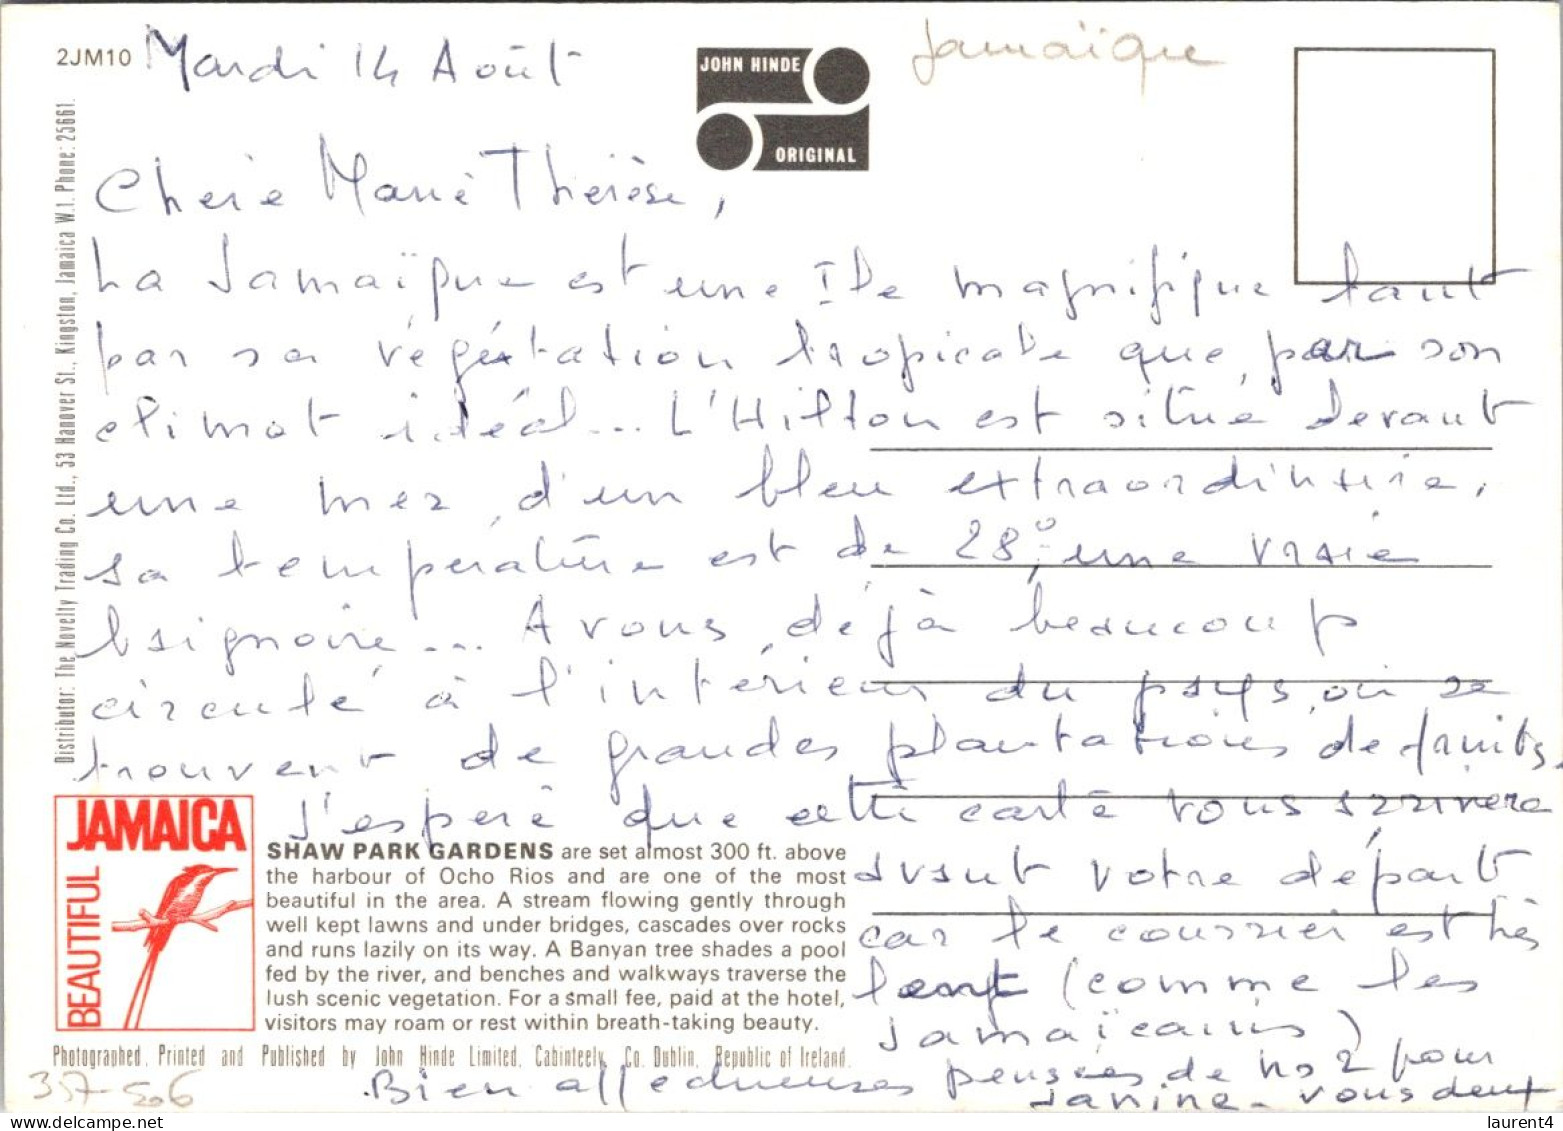 2JM10
Mardi 14 Août
JOHN HINDE
ORIGINAL
Jamaïque
Chère Marie Thérèse,
La Jamaïque est une Ile magnifique tant
par sa végétation tropicale que par son
climat idéal... L'Hilton est situé devant
une mer d'un bleu extraordinaire,
sa température est de 28°, une vraie
baignoire... Avons déjà beaucoup
circulé à l'intérieur du pays où se
trouvent de grandes plantations de fruits.
J'espère que cette carte vous arrivera
avant votre départ
car le courrier est très
lent (comme les
Jamaïcains)
Bien affectueuses pensées de nos 2 pour
Janine - vous deux
Distributor: The Novelty Trading Co. Ltd., 53 Hanover St., Kingston, Jamaica W.I. Phone: 25661.
JAMAICA
BEAUTIFUL
SHAW PARK GARDENS are set almost 300 ft. above
the harbour of Ocho Rios and are one of the most
beautiful in the area. A stream flowing gently through
well kept lawns and under bridges, cascades over rocks
and runs lazily on its way. A Banyan tree shades a pool
fed by the river, and benches and walkways traverse the
lush scenic vegetation. For a small fee, paid at the hotel,
visitors may roam or rest within breath-taking beauty.
Photographed, Printed and Published by John Hinde Limited, Cabinteely, Co. Dublin, Republic of Ireland.
laurent4